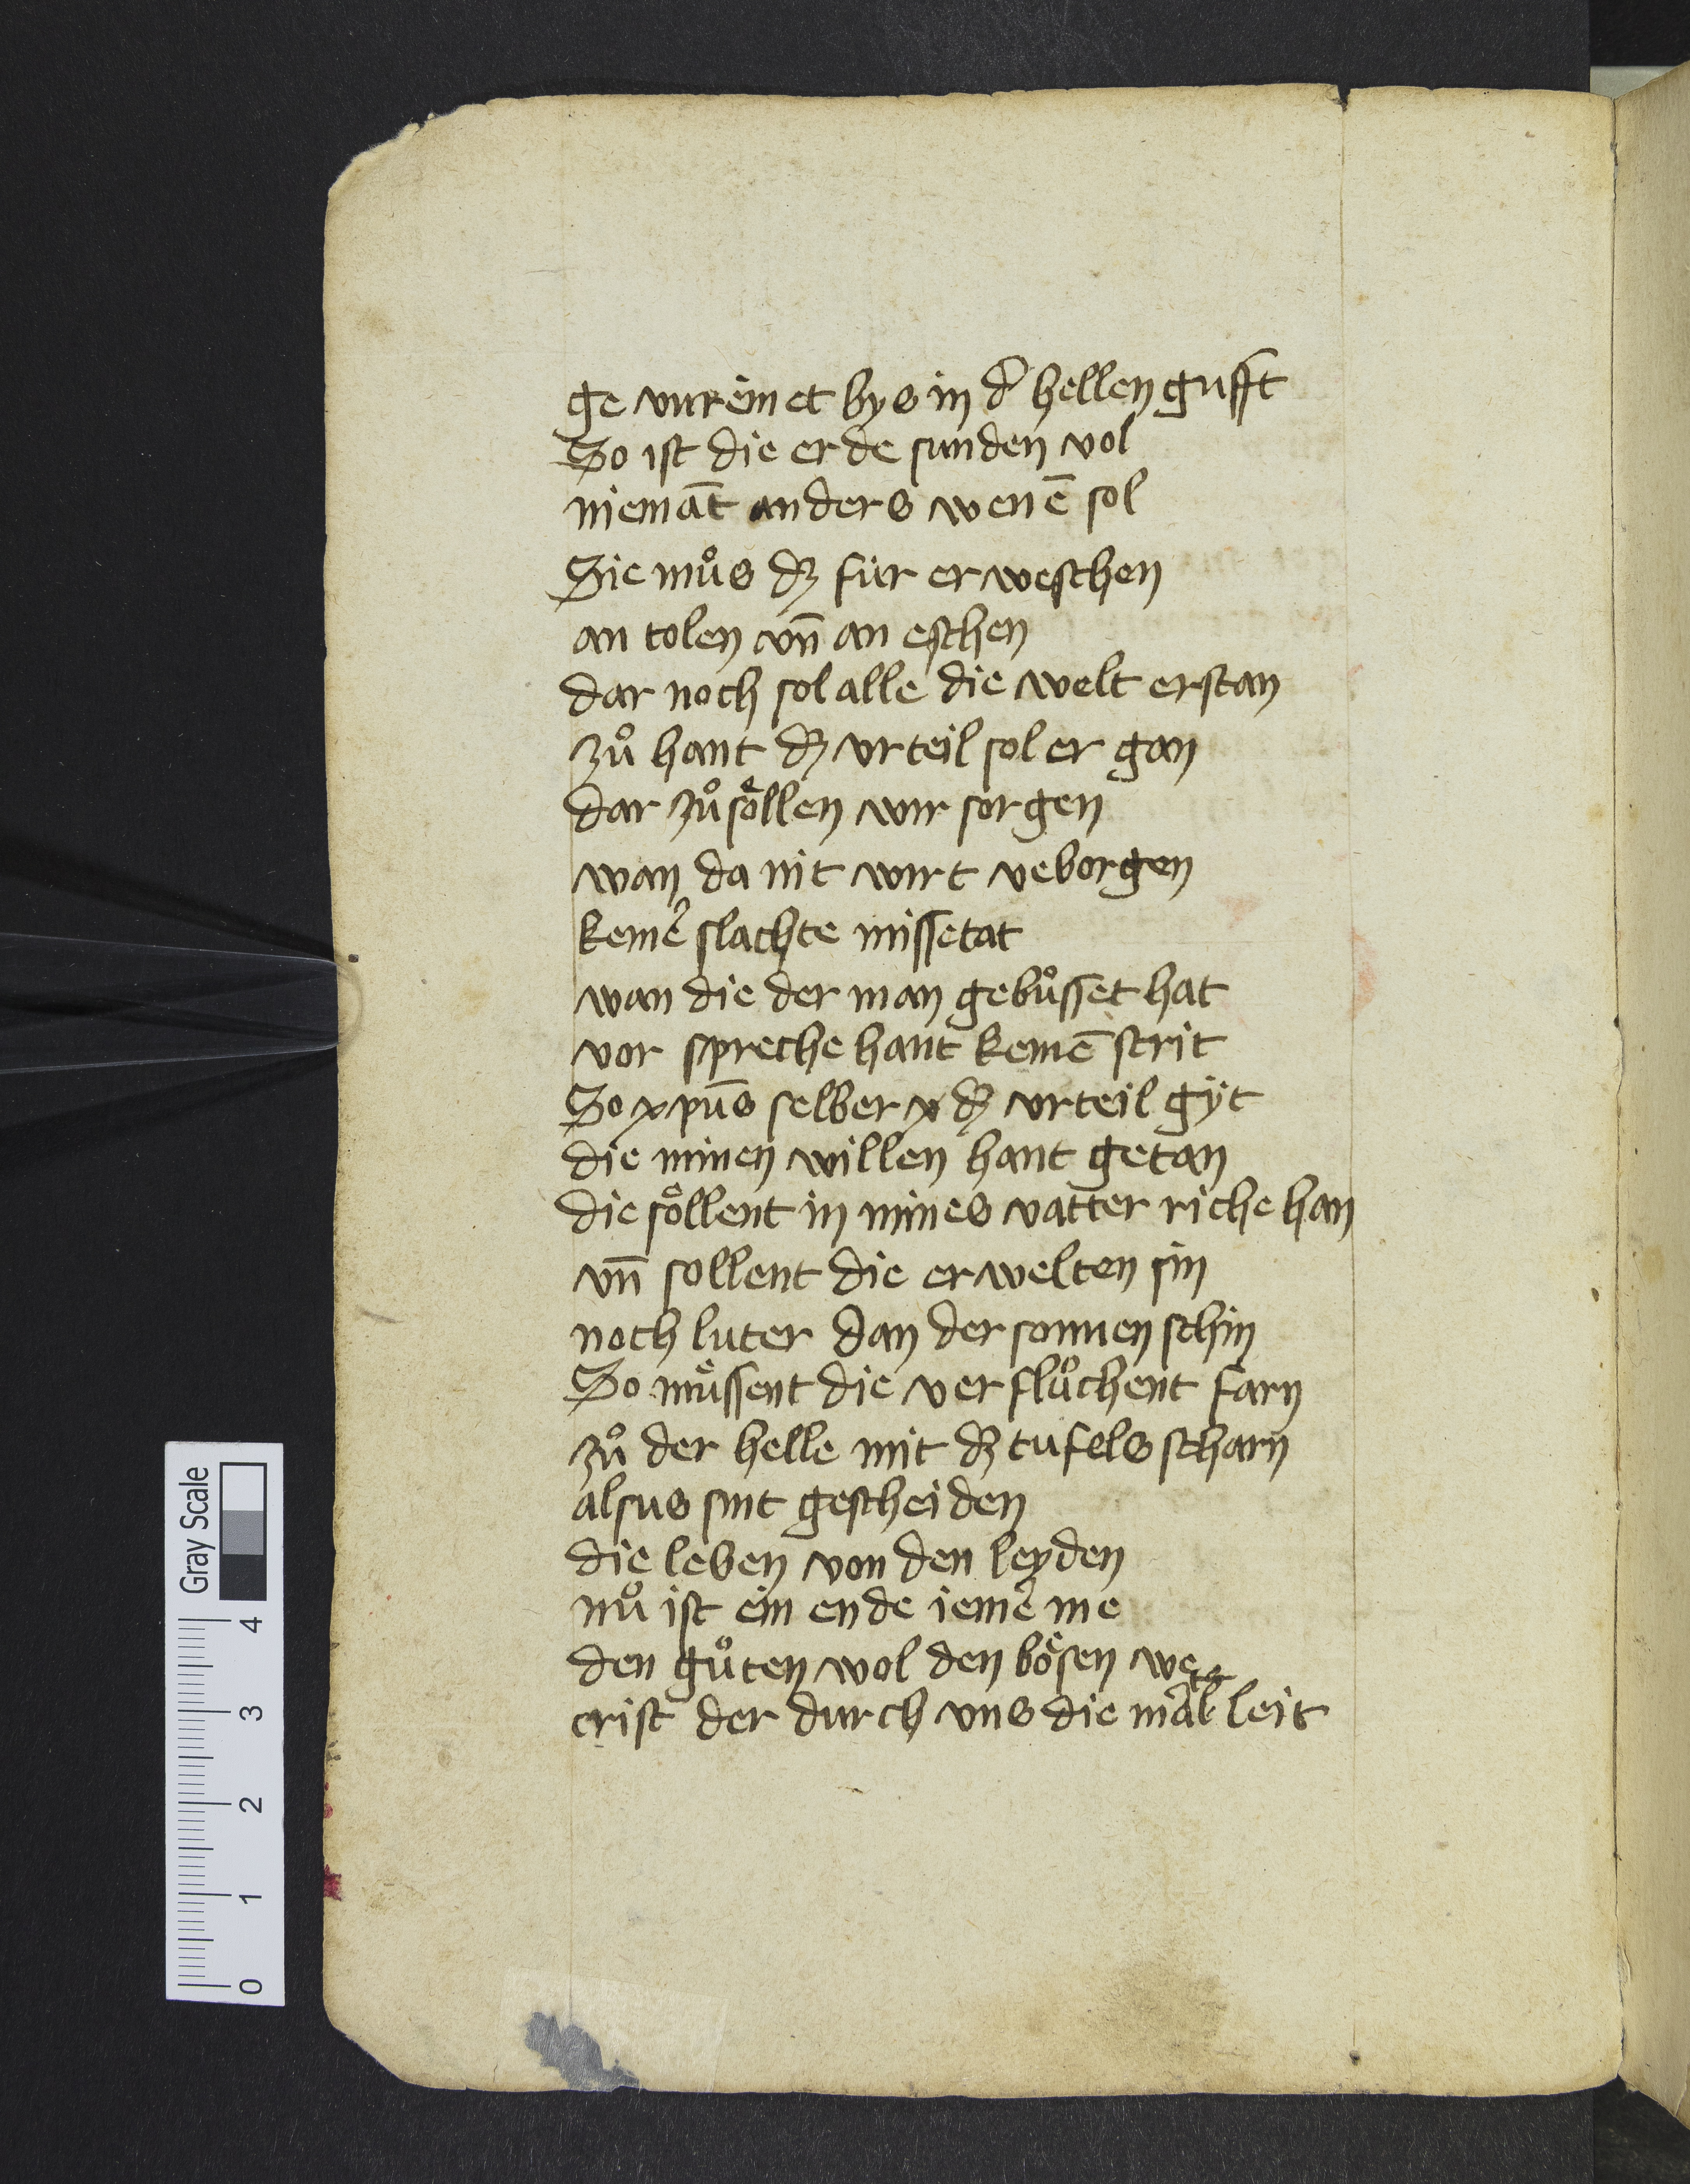 ge vnreinet bys in d̓ hellen gufft
So ist die erde sunden vol
niemāt anders wenē sol
Sie můs dʒ für erweschen
an kolen vn̄ an eschen
dar noch sol alle die welt erstan
zů hant dʒ vrteil sol er gan
dar zů sͤollen wir sorgen
wan da nit wirt veborgen
keine̓ slachte missetat
wan die der man gebůsset hat
vor spreche hant keinē strit
So xpūs selber dʒ vrteil gÿt
die minen willen hant getan
die sͤollent in mines vatter riche han
vn̄ sollent die erwelten sin
noch luter dan der sonnen schin
So mͤussent die verflůchent farn
zů der helle mit dʒ tufels scharn
alsus sint gescheiden
die leben von den leyden
nů ist ein ende ieme̓ me
den gůten wol den bͤosen we
crist der durch vns die mart̓ leit
Gray Scale
4
3
2
1
0